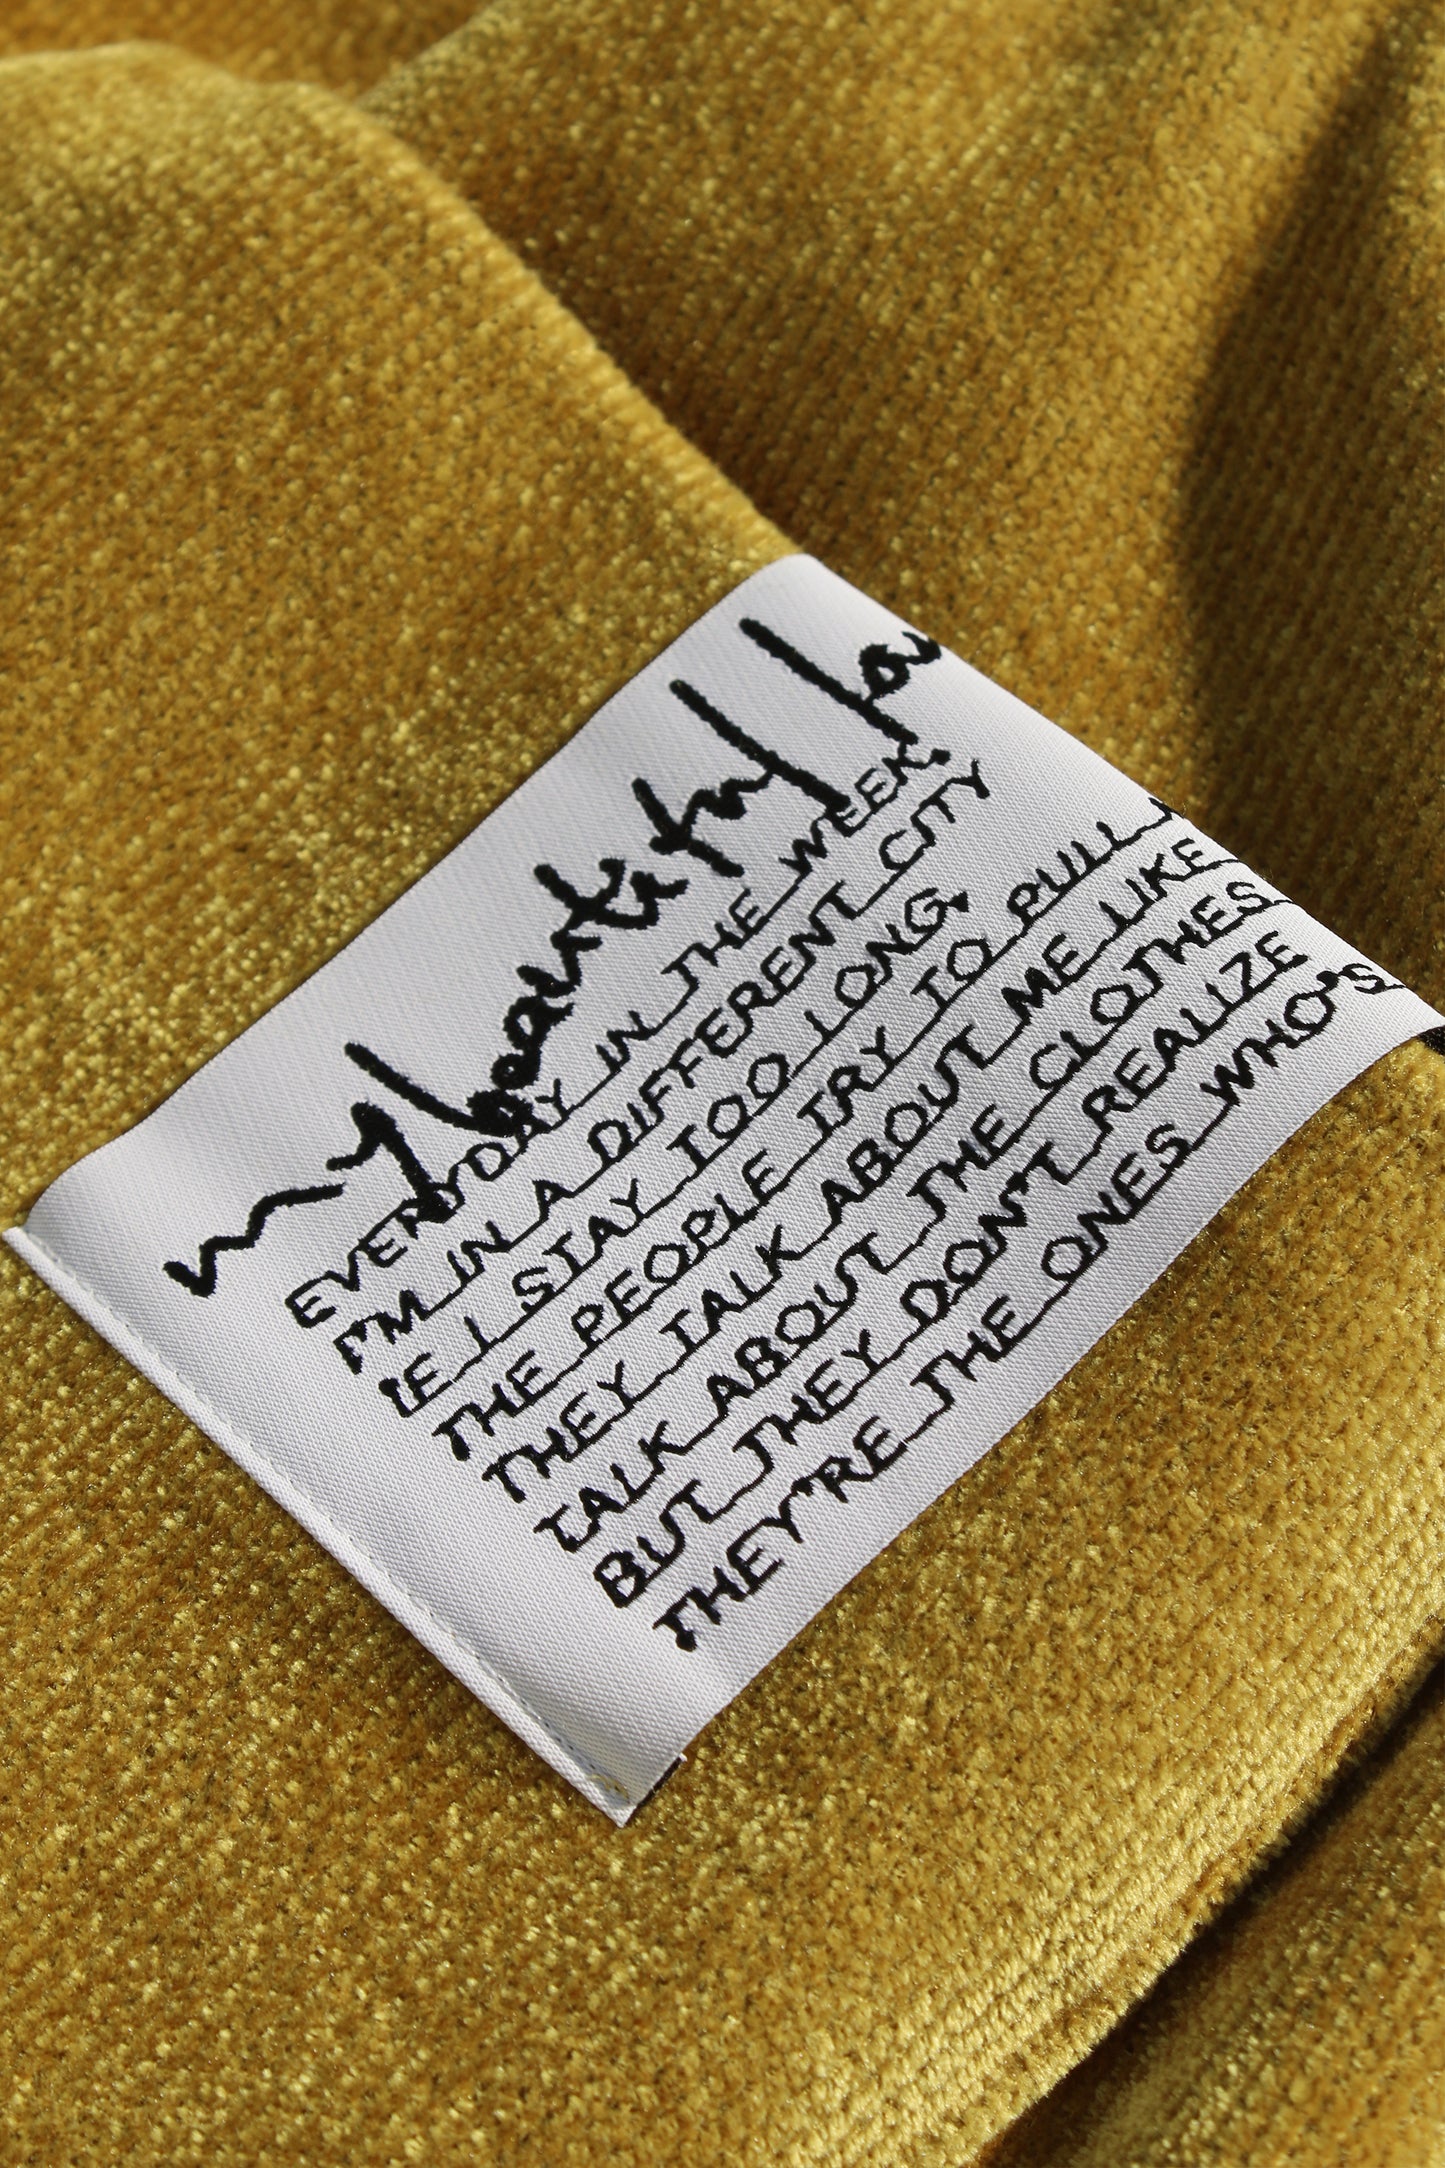 my beautiful
EVERYDAY IN THE WEEK,
I'M IN A DIFFERENT CITY
IF I STAY TOO LONG,
THE PEOPLE TRY TO PULL
THEY TALK ABOUT ME LIKE
TALK ABOUT THE CLOTHES
BUT THEY DON'T REALIZE
THEY'RE THE ONES WHO'S